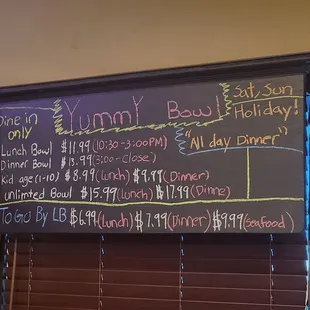 Dine in
only
Yummy Bowl
Sat, Sun
Holiday!
"All day Dinner"
Lunch Bowl $11.99 (10:30-3:00PM)
Dinner Bowl $13.99 (3:00-Close)
Kid age (1-10) $8.99 (Lunch) $9.99 (Dinner)
unlimted Bowl $15.99 (Lunch) $17.99 (Dinne)
To Go By LB $6.99 (Lunch) $7.99 (Dinner) $9.99 (seafood)